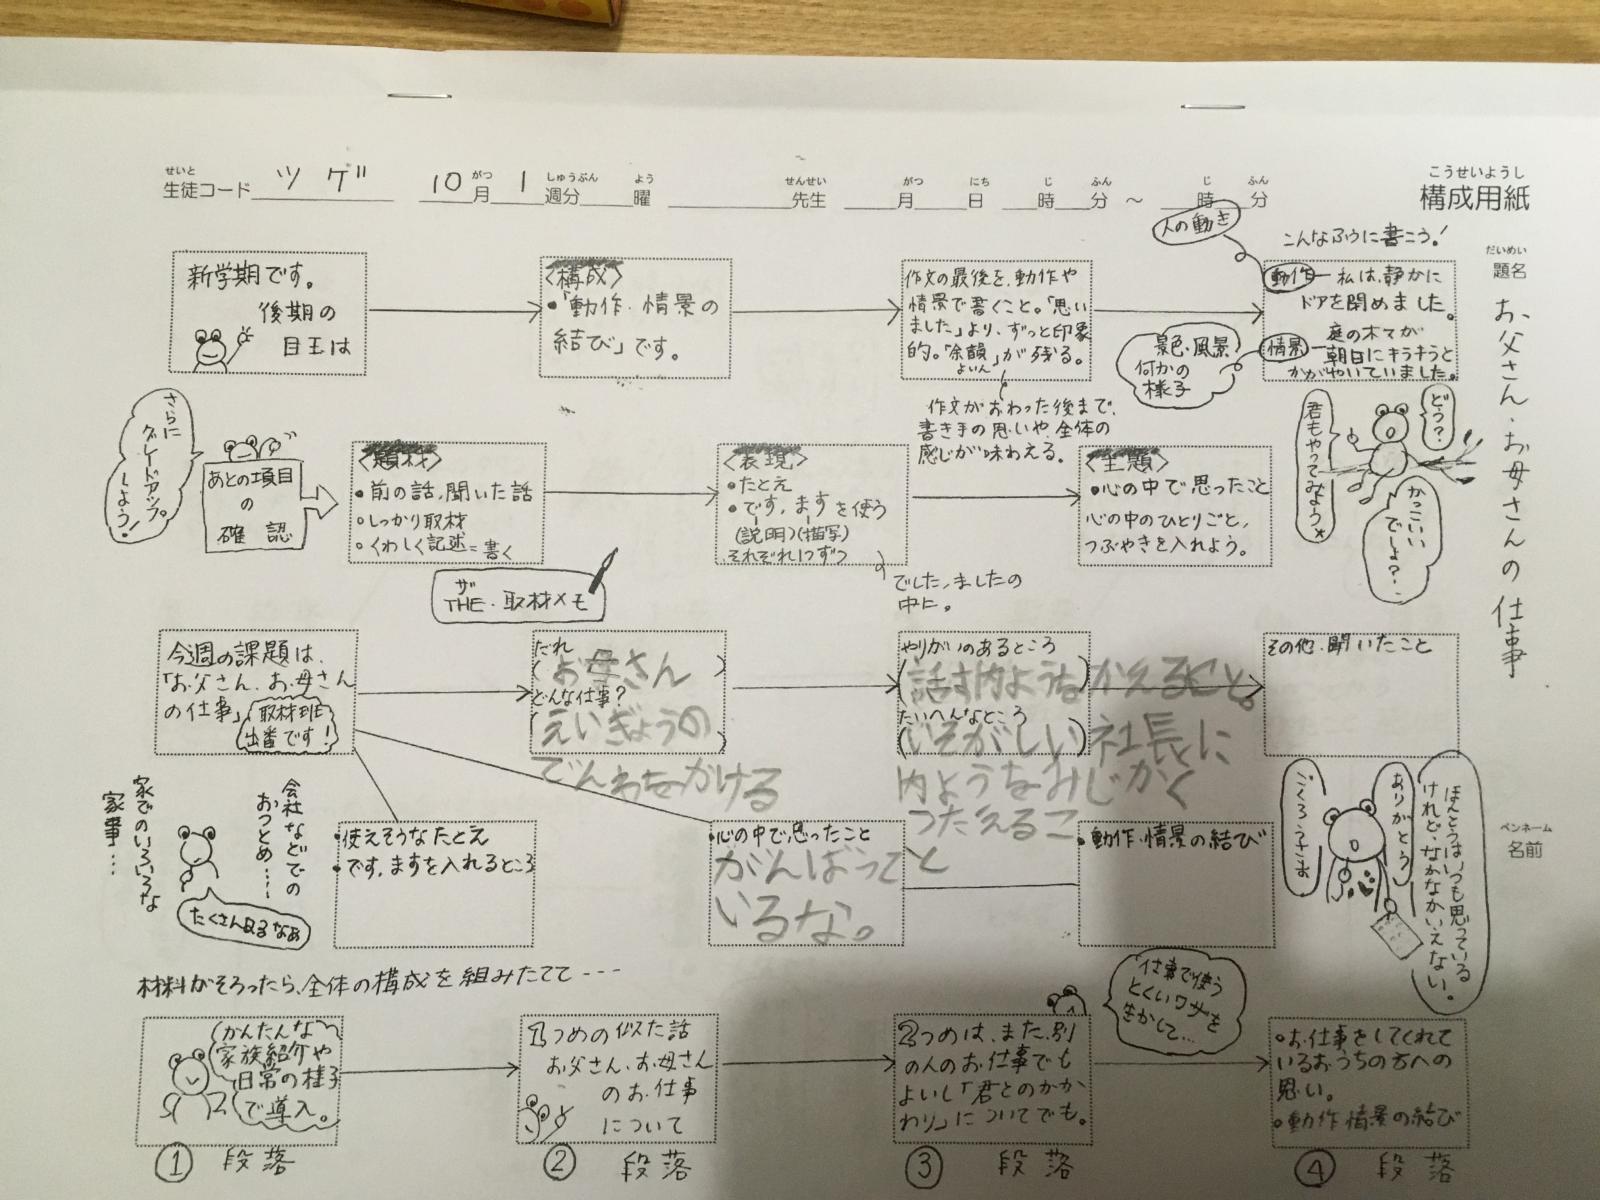 せいと
生徒コード ツゲ 10月 1週分 曜 先生 月 日 時 分 〜 時 分
がつ しゅうぶん よう せんせい がつ にち じ ふん じ ふん
こうせいようし
構成用紙
だいめい
題名
お父さん・お母さんの仕事
ペンネーム
名前
新学期です。
後期の
目玉は
〈構成〉
・「動作・情景の
結び」です。
作文の最後を、動作や
情景で書くこと。「思い
ました」より、ずっと印象
的。「余韻」が残る。
よいん
作文がおわった後まで、
書き手の思いや、全体の
感じが味わえる。
人の動き
こんなふうに書こう!
動作─私は、静かに
ドアを閉めました。
情景─庭の木々が
朝日にキラキラと
かがやいていました。
景色・風景
何かの
様子
どう?
君もやってみよう
かっこいい
でしょ?
さらに
グレードアップ
しよう!
あとの項目
の
確認
〈題材〉
・前の話、聞いた話
・しっかり取材
・くわしく記述=書く
ザ
THE・取材メモ
〈表現〉
・たとえ
・です、ますを使う
(説明)(描写)
それぞれ1つずつ
でした、ましたの
中に。
〈主題〉
・心の中で思ったこと
心の中のひとりごと、
つぶやきを入れよう。
今週の課題は、
「お父さん、お母さん
の仕事」
取材班
出番です!
だれ
(お母さん)
どんな仕事?
(えいぎょうの
でんわをかける
やりがいのあるところ
(話す内ようをかえること。
たいへんなところ
(いそがしい社長に
内ようをみじかく
つたえるこ
と
その他、聞いたこと
家でのいろいろな
家事…
会社などでの
おつとめ……
たくさんあるなぁ
・使えそうなたとえ
・です、ますを入れるところ
・心の中で思ったこと
がんばって
いるな。
・動作・情景の結び
ごくろうさま
ありがとう
ほんとうは、いつも思っている
けれど、なかなかいえない。
材料がそろったら、全体の構成を組みたてて---
かんたんな
家族紹介や
日常の様子
で導入。
① 段落
1つめの似た話
お父さん、お母さん
のお仕事
について
② 段落
2つめは、また、別
の人のお仕事でも
よいし「君とのかか
わり」についてでも。
③ 段落
仕事で使う
とくいワザを
生かして…
・お仕事をしてくれて
いるおうちの方への
思い。
・動作・情景の結び
④ 段落